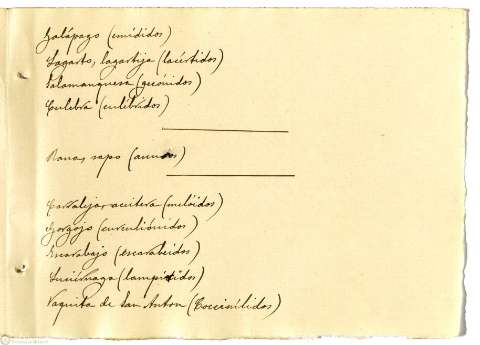 Galápago (emídidos)
Lagarto, lagartija (lacértidos)
Salamanquesa (gecónidos)
Culebra (culébridos)
Ranas, sapo (anuros)
Carraleja, aceitera (melóidos)
Gorgojo (curculiónidos)
Escarabajo (escarabeidos)
Luciérnaga (lampíridos)
Vaquita de San Antón (Coccinílidos)